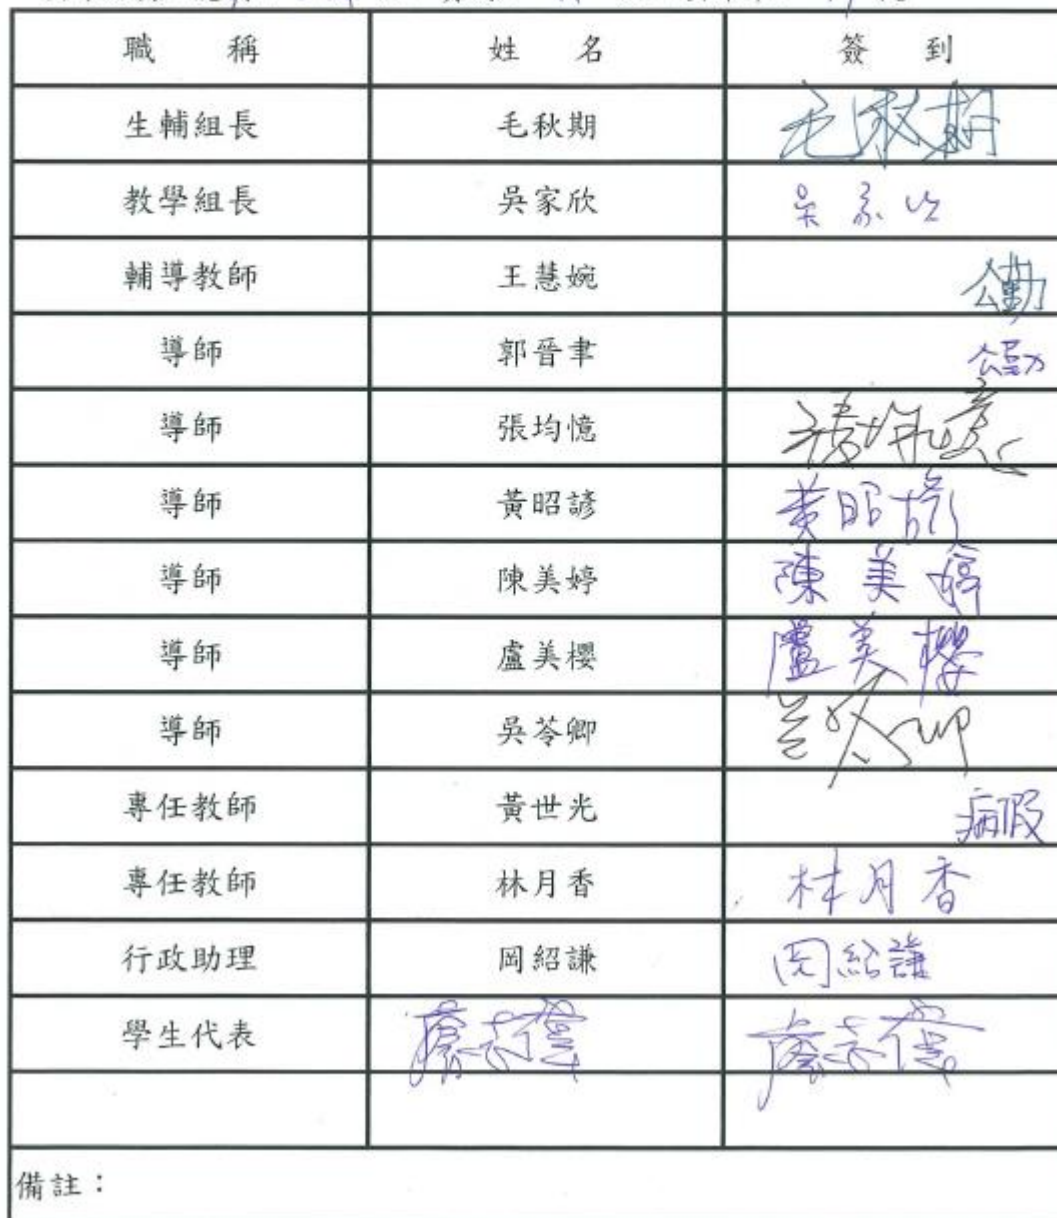 職 稱 姓 名 簽 到
生輔組長 毛秋期 毛秋期
教學組長 吳家欣 吳家欣
輔導教師 王慧婉 公勤
導師 郭晉聿 公勤
導師 張均憶 張均憶
導師 黃昭諺 黃昭諺
導師 陳美婷 陳美婷
導師 盧美櫻 盧美櫻
導師 吳苓卿 吳苓卿
專任教師 黃世光 病假
專任教師 林月香 林月香
行政助理 岡紹謙 岡紹謙
學生代表
備註：